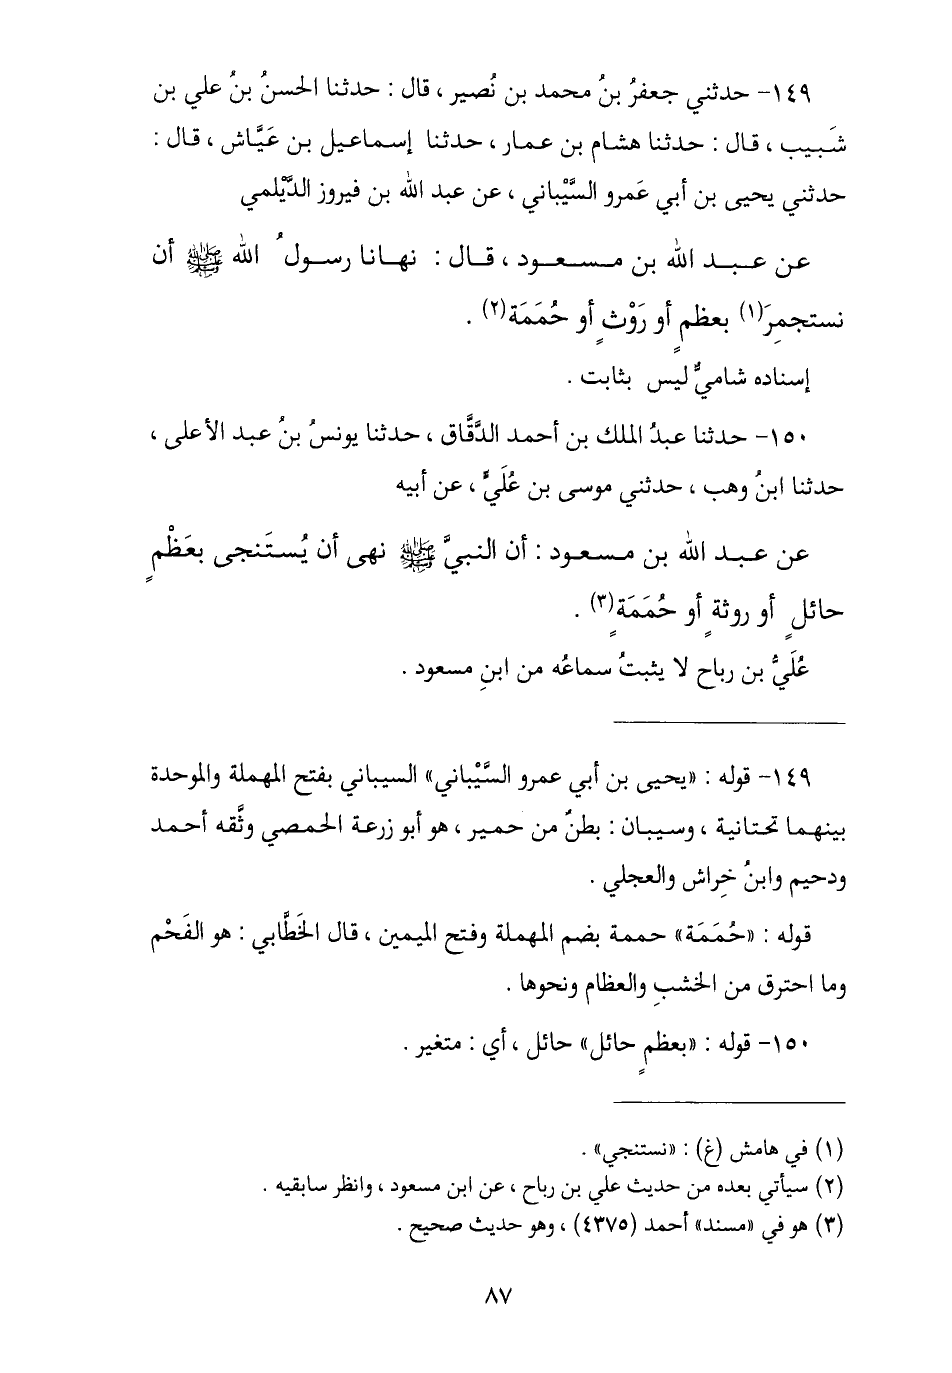 ١٤٩- حدثني جعفرُ بنُ محمد بن نُصير ، قال : حدثنا الحسنُ بنُ علي بن
شَبيب ، قال : حدثنا هشام بن عمار ، حدثنا إسماعيل بن عَيَّاش ، قال :
حدثني يحيى بن أبي عَمرو السَّيْباني ، عن عبد الله بن فيروز الدَّيْلمي
عن عبد الله بن مسعود ، قال : نهانا رسولُ الله ﷺ أن
نستجمِرَ(١) بعظمٍ أو رَوْثٍ أو حُمَمَة(٢) .
إسناده شاميٌّ ليس بثابت .
١٥٠- حدثنا عبدُ الملك بن أحمد الدَّقَّاق ، حدثنا يونسُ بنُ عبد الأعلى ،
حدثنا ابنُ وهب ، حدثني موسى بن عُلَيٍّ ، عن أبيه
عن عبد الله بن مسعود : أن النبيَّ ﷺ نهى أن يُستَنجى بعَظْمٍ
حائلٍ أو روثةٍ أو حُمَمَةٍ(٣) .
عُلَيُّ بن رباح لا يثبتُ سماعُه من ابنِ مسعود .
١٤٩- قوله : «يحيى بن أبي عمرو السَّيْباني» السيباني بفتح المهملة والموحدة
بينهما تحتانية ، وسيبان : بطنٌ من حمير ، هو أبو زرعة الحمصي وثَّقه أحمد
ودحيم وابنُ خِراش والعجلي .
قوله : «حُمَمَة» حممة بضم المهملة وفتح الميمين ، قال الخَطَّابي : هو الفَحْم
وما احترق من الخشبِ والعظام ونحوها .
١٥٠- قوله : «بعظمٍ حائل» حائل ، أي : متغير .
(١) في هامش (غ) : «نستنجي» .
(٢) سيأتي بعده من حديث علي بن رباح ، عن ابن مسعود ، وانظر سابقيه .
(٣) هو في «مسند» أحمد (٤٣٧٥) ، وهو حديث صحيح .
٨٧